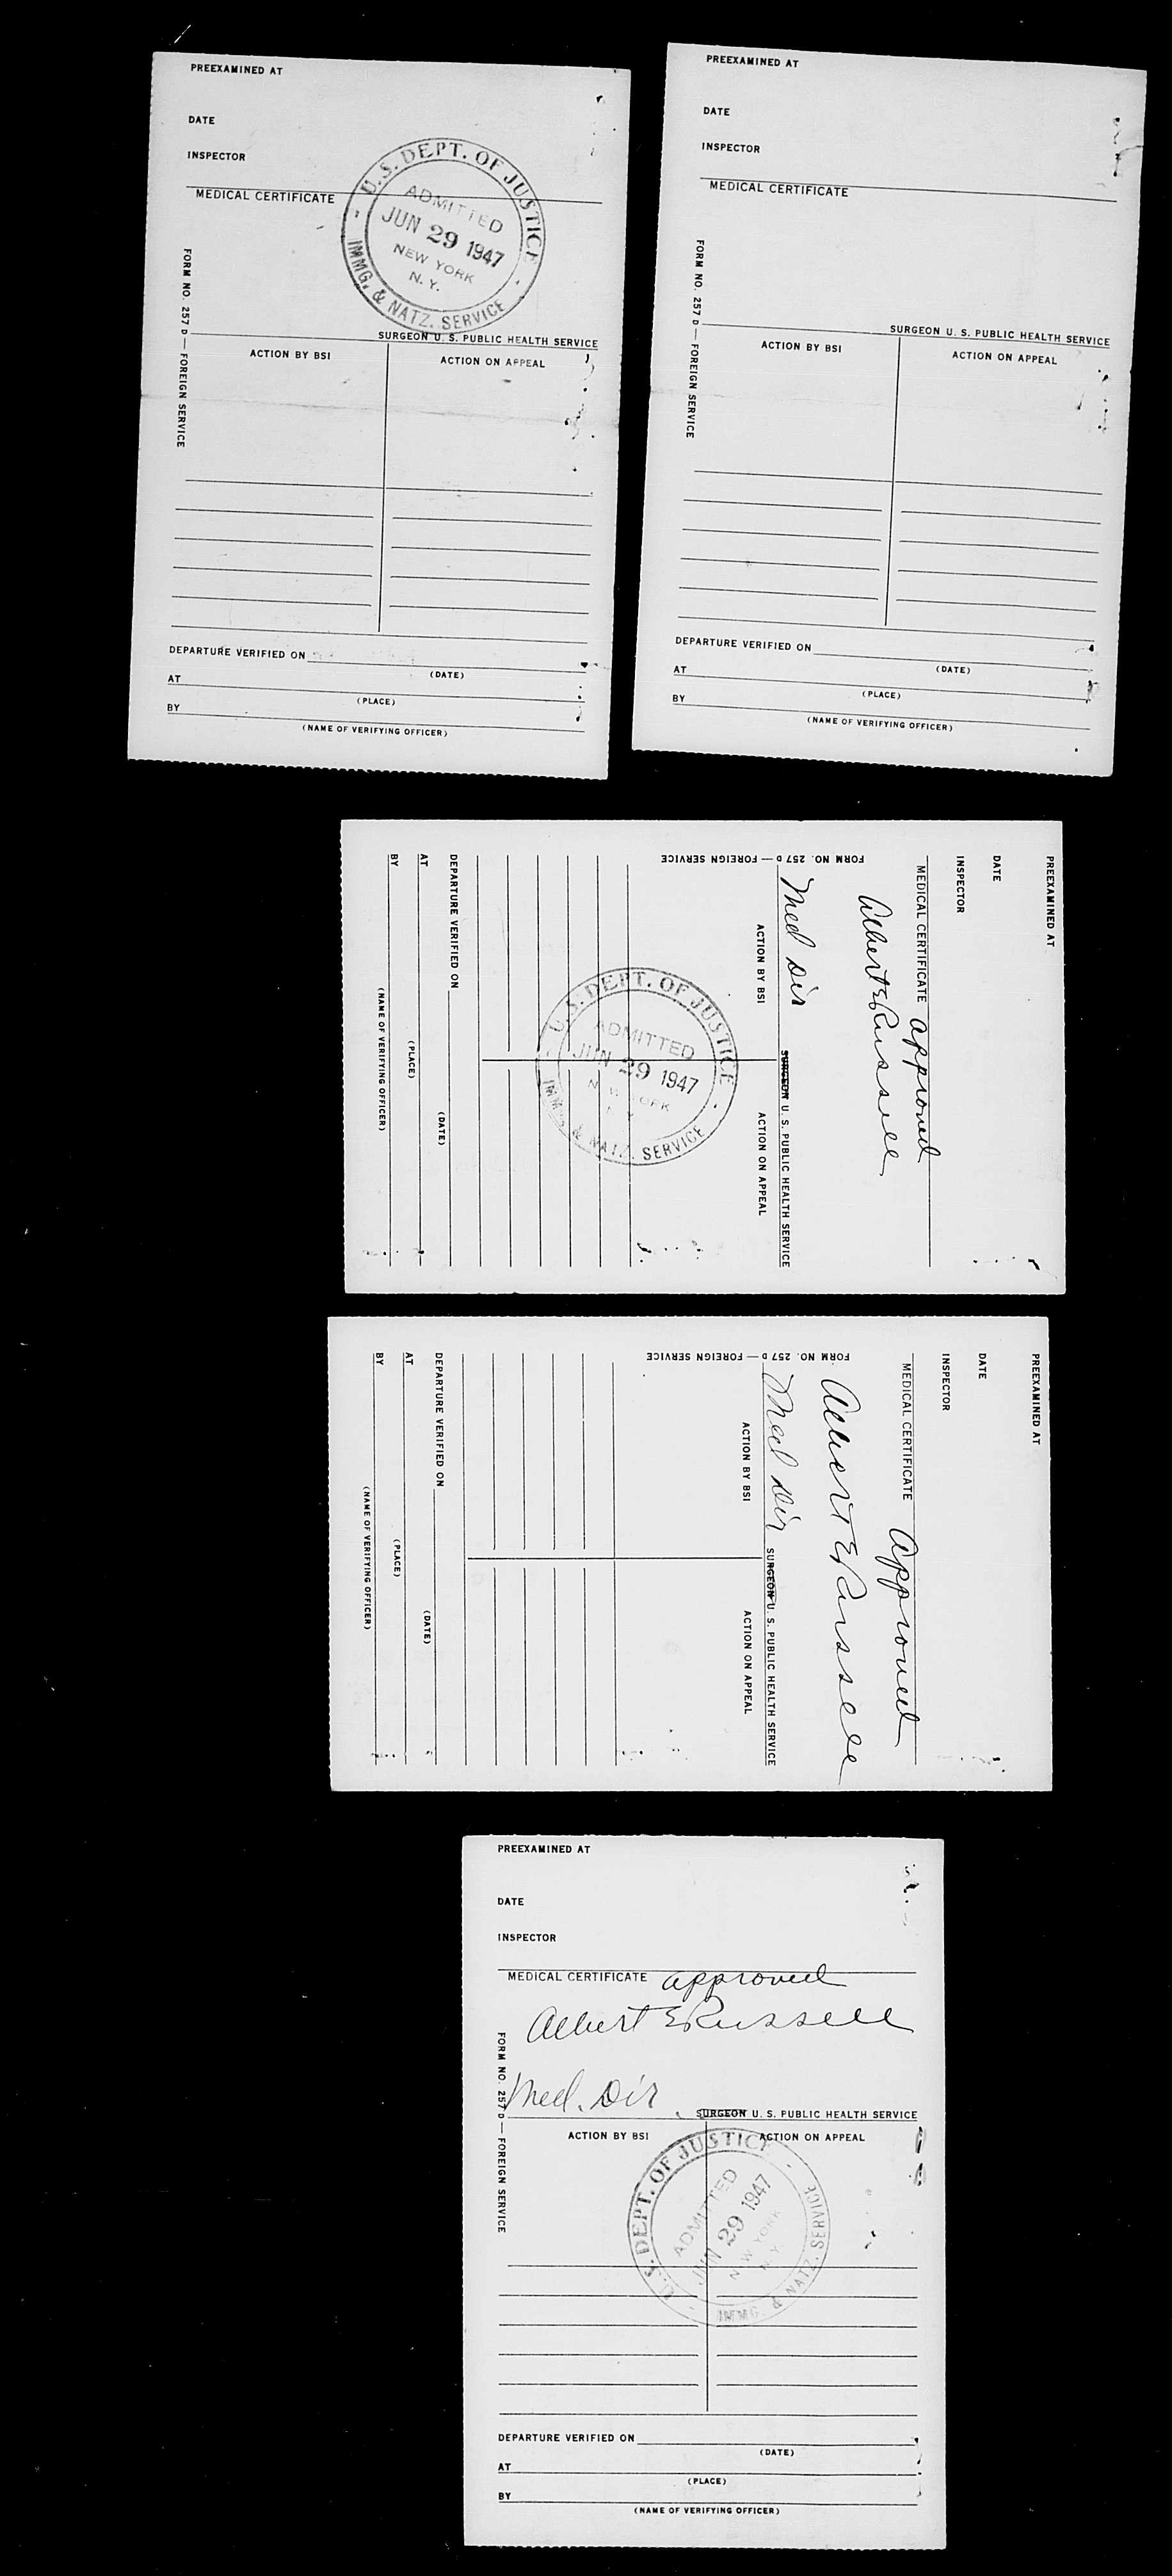 PREEXAMINED AT
DATE
INSPECTOR
MEDICAL CERTIFICATE
U.S. DEPT. OF JUSTICE
ADMITTED
JUN 29 1947
NEW YORK
N.Y.
IMMG. & NATZ. SERVICE
FORM NO. 257 D — FOREIGN SERVICE
SURGEON U. S. PUBLIC HEALTH SERVICE
ACTION BY BSI
ACTION ON APPEAL
DEPARTURE VERIFIED ON
(DATE)
AT
(PLACE)
BY
(NAME OF VERIFYING OFFICER)
PREEXAMINED AT
DATE
INSPECTOR
MEDICAL CERTIFICATE
FORM NO. 257 D — FOREIGN SERVICE
SURGEON U. S. PUBLIC HEALTH SERVICE
ACTION BY BSI
ACTION ON APPEAL
DEPARTURE VERIFIED ON
(DATE)
AT
(PLACE)
BY
(NAME OF VERIFYING OFFICER)
PREEXAMINED AT
DATE
INSPECTOR
MEDICAL CERTIFICATE approved
Albert E Russell
Med Dir
FORM NO. 257 D — FOREIGN SERVICE
SURGEON U. S. PUBLIC HEALTH SERVICE
ACTION BY BSI
ACTION ON APPEAL
U.S. DEPT. OF JUSTICE
ADMITTED
JUN 29 1947
NEW YORK
N.Y.
IMMG. & NATZ. SERVICE
DEPARTURE VERIFIED ON
(DATE)
AT
(PLACE)
BY
(NAME OF VERIFYING OFFICER)
PREEXAMINED AT
DATE
INSPECTOR
MEDICAL CERTIFICATE Approved
Albert E Russell
Med Dir
FORM NO. 257 D — FOREIGN SERVICE
SURGEON U. S. PUBLIC HEALTH SERVICE
ACTION BY BSI
ACTION ON APPEAL
DEPARTURE VERIFIED ON
(DATE)
AT
(PLACE)
BY
(NAME OF VERIFYING OFFICER)
PREEXAMINED AT
DATE
INSPECTOR
MEDICAL CERTIFICATE approved
Albert E Russell
Med. Dir
FORM NO. 257 D — FOREIGN SERVICE
SURGEON U. S. PUBLIC HEALTH SERVICE
ACTION BY BSI
ACTION ON APPEAL
U.S. DEPT. OF JUSTICE
ADMITTED
JUN 29 1947
NEW YORK
N.Y.
IMMG. & NATZ. SERVICE
DEPARTURE VERIFIED ON
(DATE)
AT
(PLACE)
BY
(NAME OF VERIFYING OFFICER)